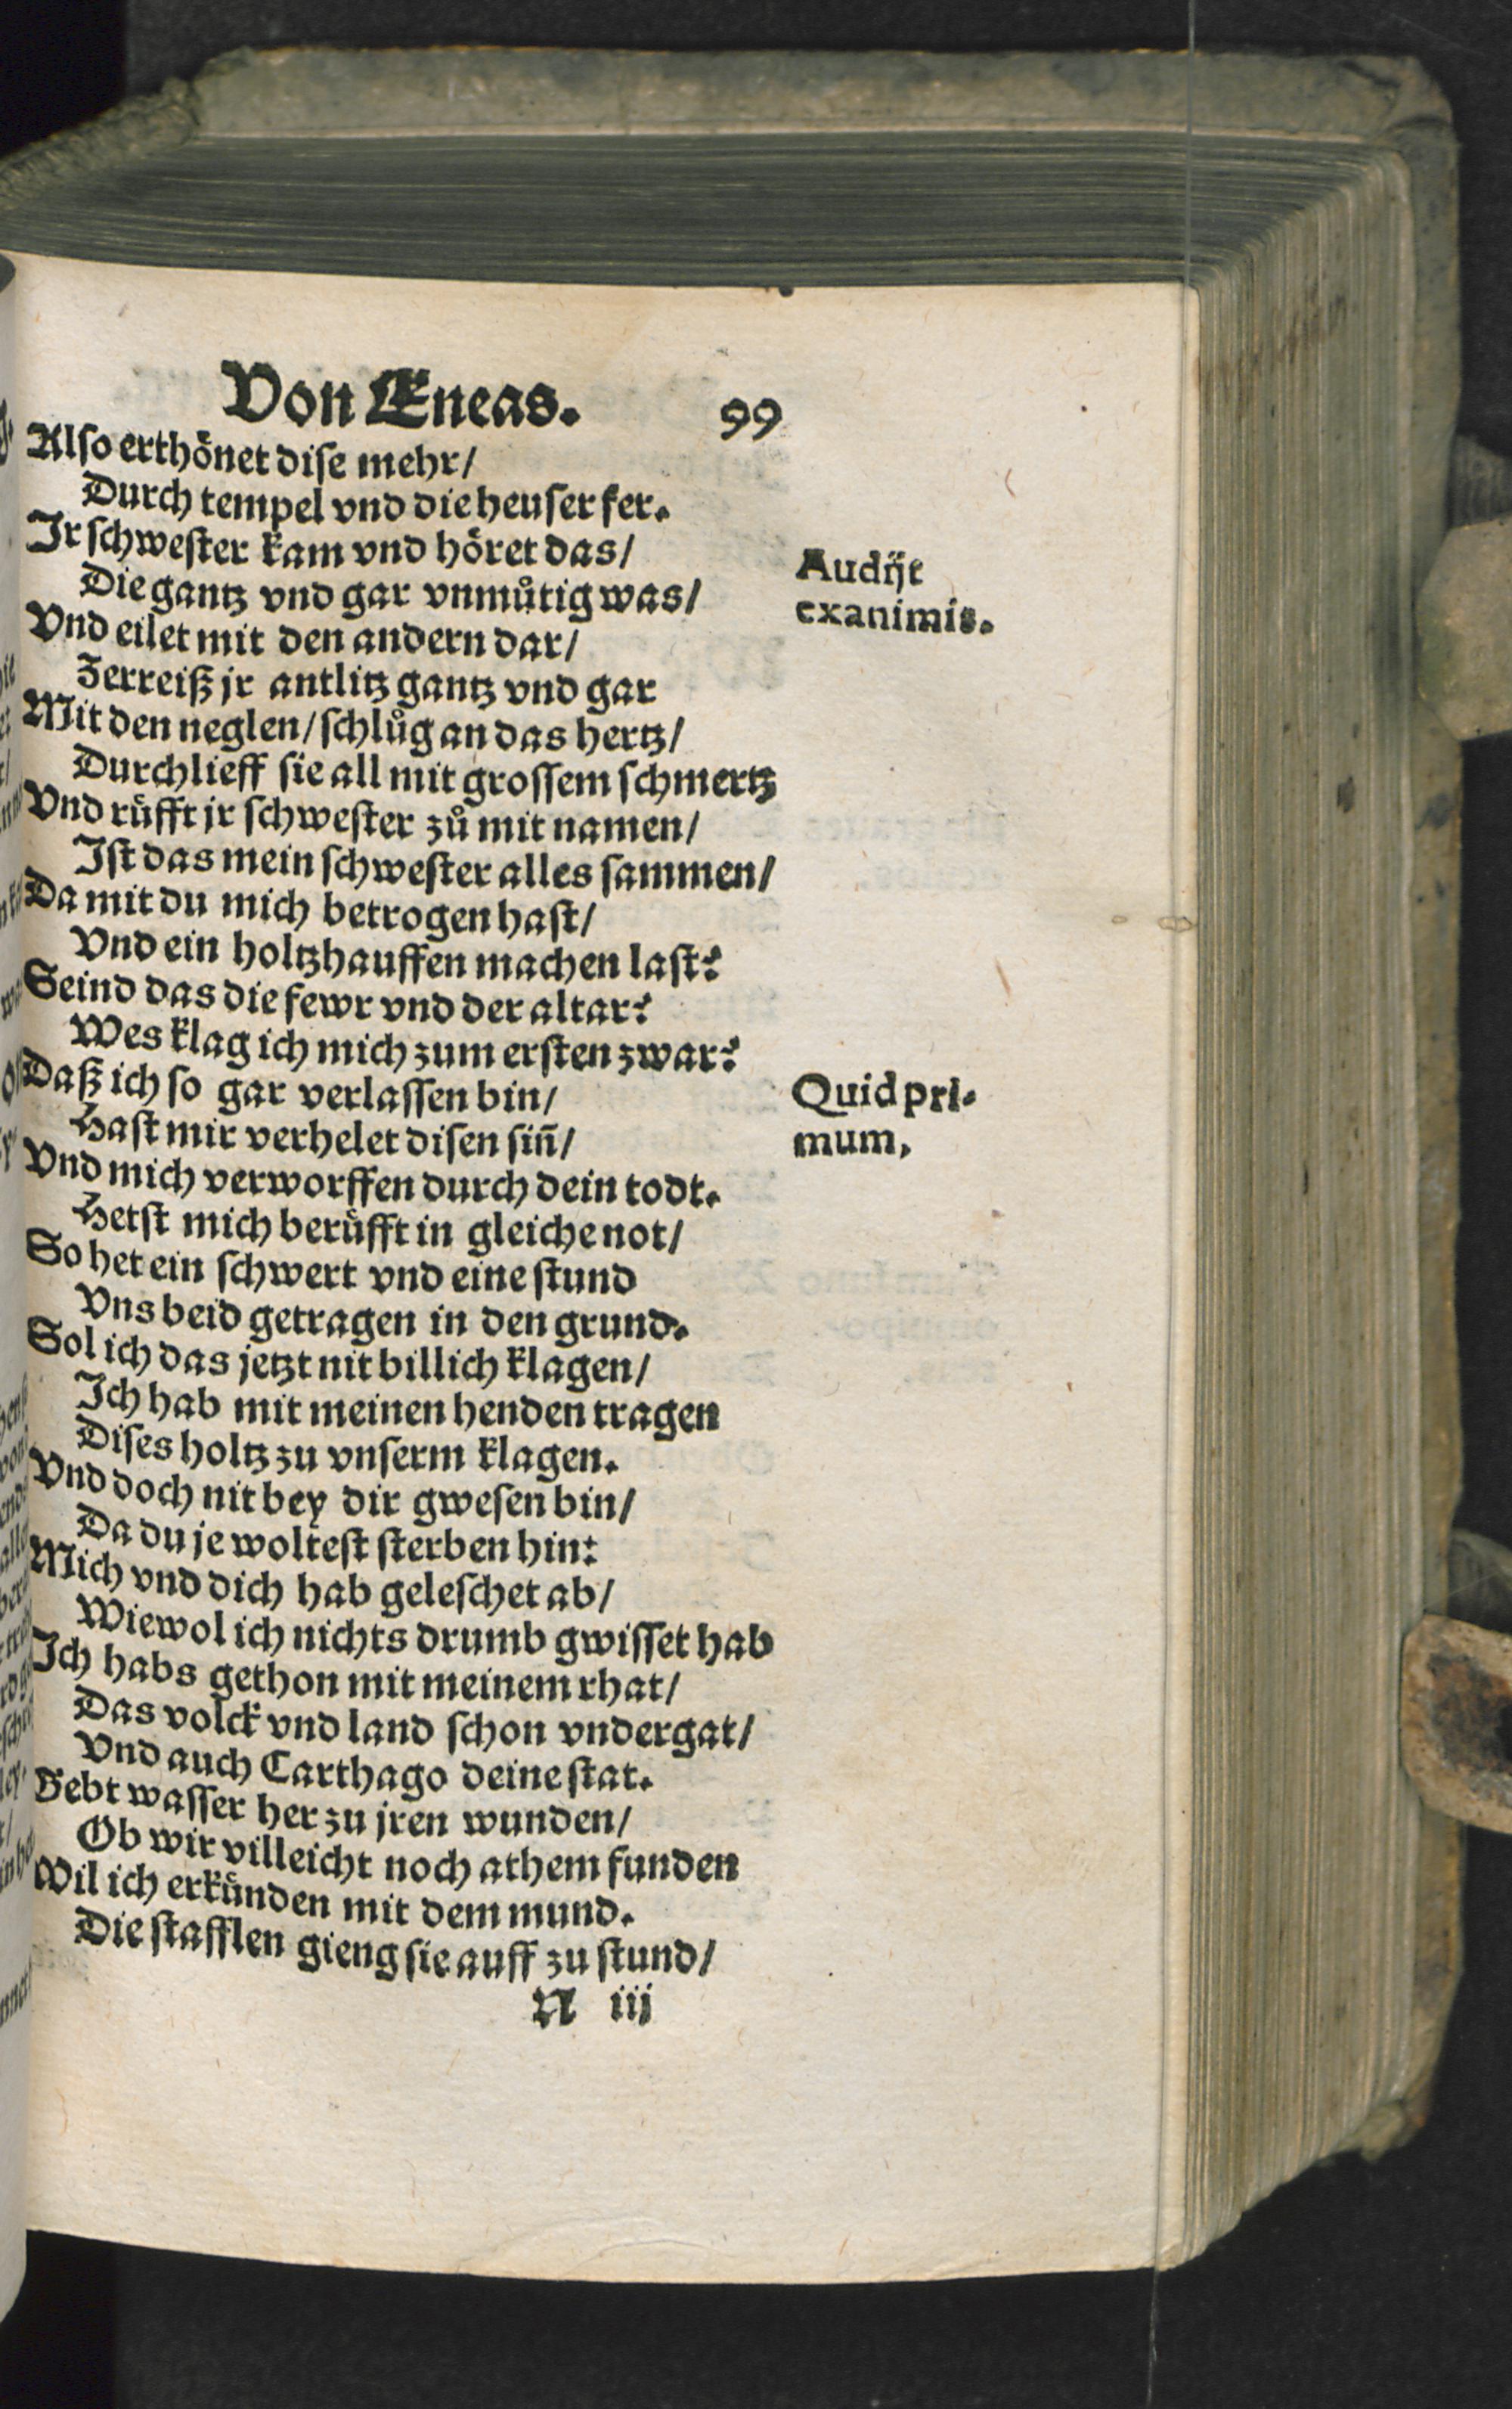 Von Æneas. 99
Also erthönet dise mehr/
Durch tempel vnd die heuser fer.
Ir schwester kam vnd höret das/
Die gantz vnd gar vnmůtig was/
Vnd eilet mit den andern dar/
Zerreiß jr antlitz gantz vnd gar
Mit den neglen/ schlůg an das hertz/
Durchlieff sie all mit grossem schmertz
Vnd rüfft jr schwester zů mit namen/
Ist das mein schwester alles sammen/
Da mit du mich betrogen hast/
Vnd ein holtzhauffen machen last?
Seind das die fewr vnd der altar?
Wes klag ich mich zum ersten zwar?
Daß ich so gar verlassen bin/
Hast mir verhelet disen sin̄/
Vnd mich verworffen durch dein todt.
Hetst mich berüfft in gleiche not/
So het ein schwert vnd eine stund
Vns beid getragen in den grund.
Sol ich das jetzt nit billich klagen/
Ich hab mit meinen henden tragen
Dises holtz zu vnserm klagen.
Vnd doch nit bey dir gwesen bin/
Da du je woltest sterben hin:
Mich vnd dich hab geleschet ab/
Wiewol ich nichts drumb gwisset hab
Ich habs gethon mit meinem rhat/
Das volck vnd land schon vndergat/
Vnd auch Carthago deine stat.
Gebt wasser her zu jren wunden/
Ob wir villeicht noch athem funden
Wil ich erkünden mit dem mund.
Die stafflen gieng sie auff zu stund/
N iij
Audijt
exanimis.
Quid pri-
mum,